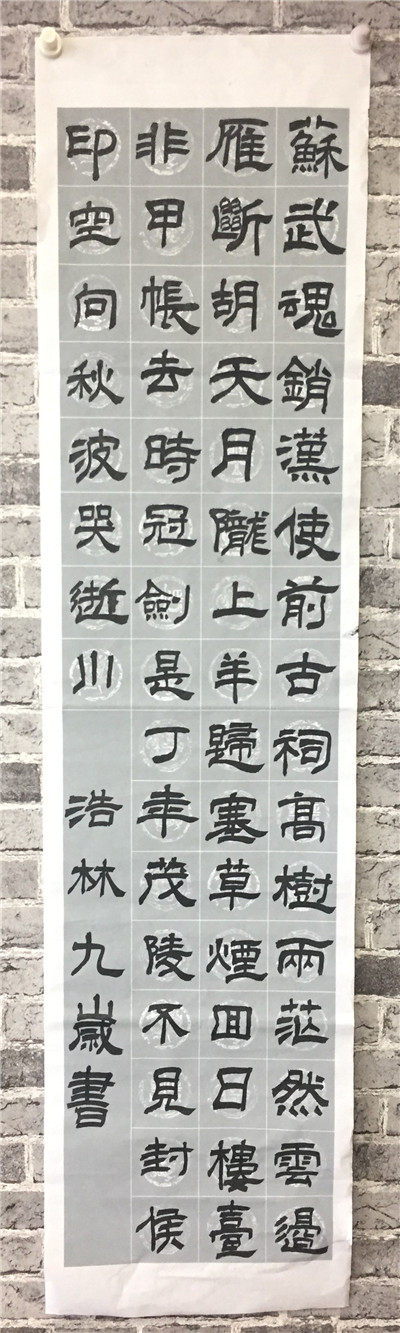 蘇武魂銷漢使前古祠高樹兩茫然雲邊
雁斷胡天月隴上羊歸塞草煙回日樓臺
非甲帳去時冠劍是丁年茂陵不見封侯
印空向秋波哭逝川
浩林九歲書